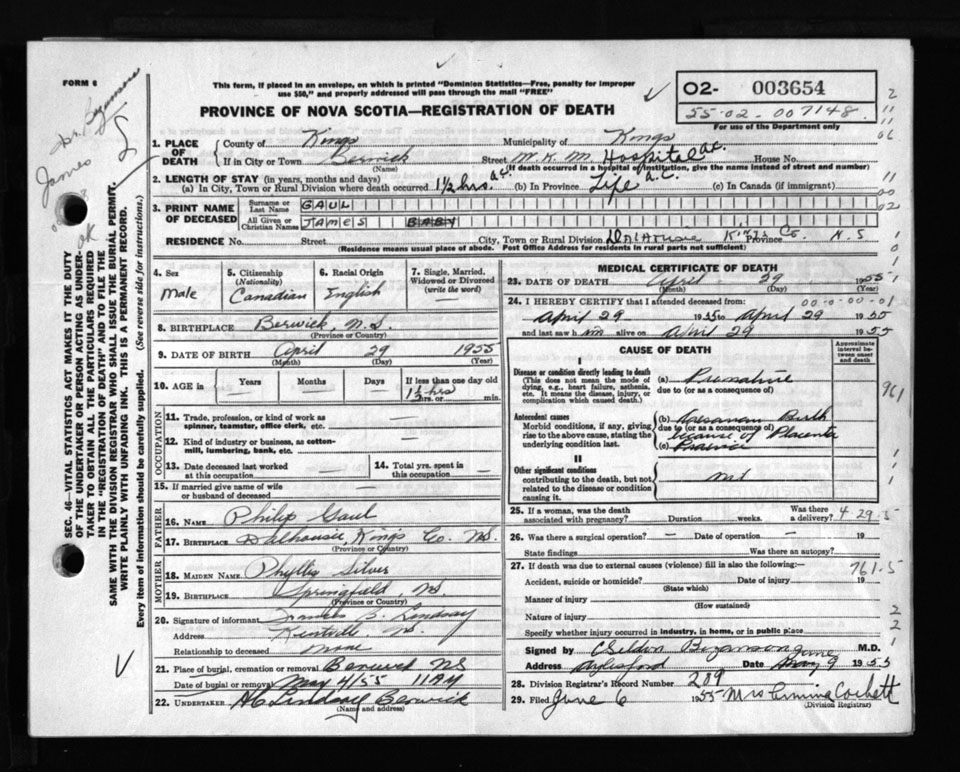 FORM 6
This form, if placed in an envelope, on which is printed "Dominion Statistics—Free, penalty for improper
use $50," and properly addressed will pass through the mail "FREE"
PROVINCE OF NOVA SCOTIA—REGISTRATION OF DEATH
O2- 003654
55-02-007148
For use of the Department only
Dr. Bezanson
James
OK
SEC. 46—VITAL STATISTICS ACT MAKES IT THE DUTY
OF THE UNDERTAKER OR PERSON ACTING AS UNDER-
TAKER TO OBTAIN ALL THE PARTICULARS REQUIRED
IN THE "REGISTRATION OF DEATH" AND TO FILE THE
SAME WITH THE DIVISION REGISTRAR WHO SHALL ISSUE THE BURIAL PERMIT.
WRITE PLAINLY WITH UNFADING INK. THIS IS A PERMANENT RECORD.
Every item of information should be carefully supplied. (See reverse side for instructions.)
1. PLACE OF DEATH County of Kings Municipality of Kings
If in City or Town Berwick (Name) Street W. K. M. Hospital a.c. House No.
(If death occurred in a hospital or institution, give the name instead of street and number)
2. LENGTH OF STAY (in years, months and days)
(a) In City, Town or Rural Division where death occurred 1½ hrs. a.c. (b) In Province Life a.c. (c) In Canada (if immigrant)
3. PRINT NAME OF DECEASED Surname or Last Name GAUL
All Given or Christian Names JAMES BABY
RESIDENCE No. Street City, Town or Rural Division Dalhousie Kings Co. Province N.S
(Residence means usual place of abode. Post Office Address for residents in rural parts not sufficient)
4. Sex Male
5. Citizenship (Nationality) Canadian
6. Racial Origin English
7. Single, Married, Widowed or Divorced (write the word)
8. BIRTHPLACE Berwick, N.S. (Province or Country)
9. DATE OF BIRTH April (Month) 29 (Day) 1955 (Year)
10. AGE in Years Months Days If less than one day old 1½ hrs hrs. or min.
OCCUPATION
11. Trade, profession, or kind of work as
spinner, teamster, office clerk, etc. —
12. Kind of industry or business, as cotton-
mill, lumbering, bank, etc. —
13. Date deceased last worked at this occupation —
14. Total yrs. spent in this occupation —
15. If married give name of wife or husband of deceased —
FATHER
16. NAME Philip Gaul
17. BIRTHPLACE Dalhousie, Kings Co. N.S. (Province or Country)
MOTHER
18. MAIDEN NAME Phyllis Silver
19. BIRTHPLACE Springfield, N.S. (Province or Country)
20. Signature of informant Lindsay
Address Kentville N.S.
Relationship to deceased none
21. Place of burial, cremation or removal Berwick NS
Date of burial or removal May 4/55 11 AM
22. UNDERTAKER HC Lindsay Berwick
(Name and address)
MEDICAL CERTIFICATE OF DEATH
23. DATE OF DEATH April (Month) 29 (Day) 1955 (Year)
24. I HEREBY CERTIFY that I attended deceased from: 00-0-00-01
April 29 1955 to April 29 1955
and last saw him alive on April 29 1955
CAUSE OF DEATH
Approximate interval between onset and death
I
Disease or condition directly leading to death
(This does not mean the mode of
dying, e.g., heart failure, asthenia,
etc. It means the disease, injury, or
complication which caused death.)
(a) Premature
due to (or as a consequence of)
Antecedent causes
Morbid conditions, if any, giving
rise to the above cause, stating the
underlying condition last.
(b) Caesarean Birth
due to (or as a consequence of)
because of Placenta
(c) Praevia
II
Other significant conditions
contributing to the death, but not
related to the disease or condition
causing it.
nil
25. If a woman, was the death associated with pregnancy? Duration weeks. Was there a delivery? 4 29.5
26. Was there a surgical operation? — Date of operation — 19
State findings Was there an autopsy?
27. If death was due to external causes (violence) fill in also the following:— 761.5
Accident, suicide or homicide? (State which) Date of injury 19
Manner of injury (How sustained)
Nature of injury
Specify whether injury occurred in industry, in home, or in public place
Signed by C Seldon Bezanson M.D.
Address Aylesford Date May 9 1955
28. Division Registrar's Record Number 289
29. Filed June 6 1955 Mrs Ermina Corbett
(Division Registrar)
961